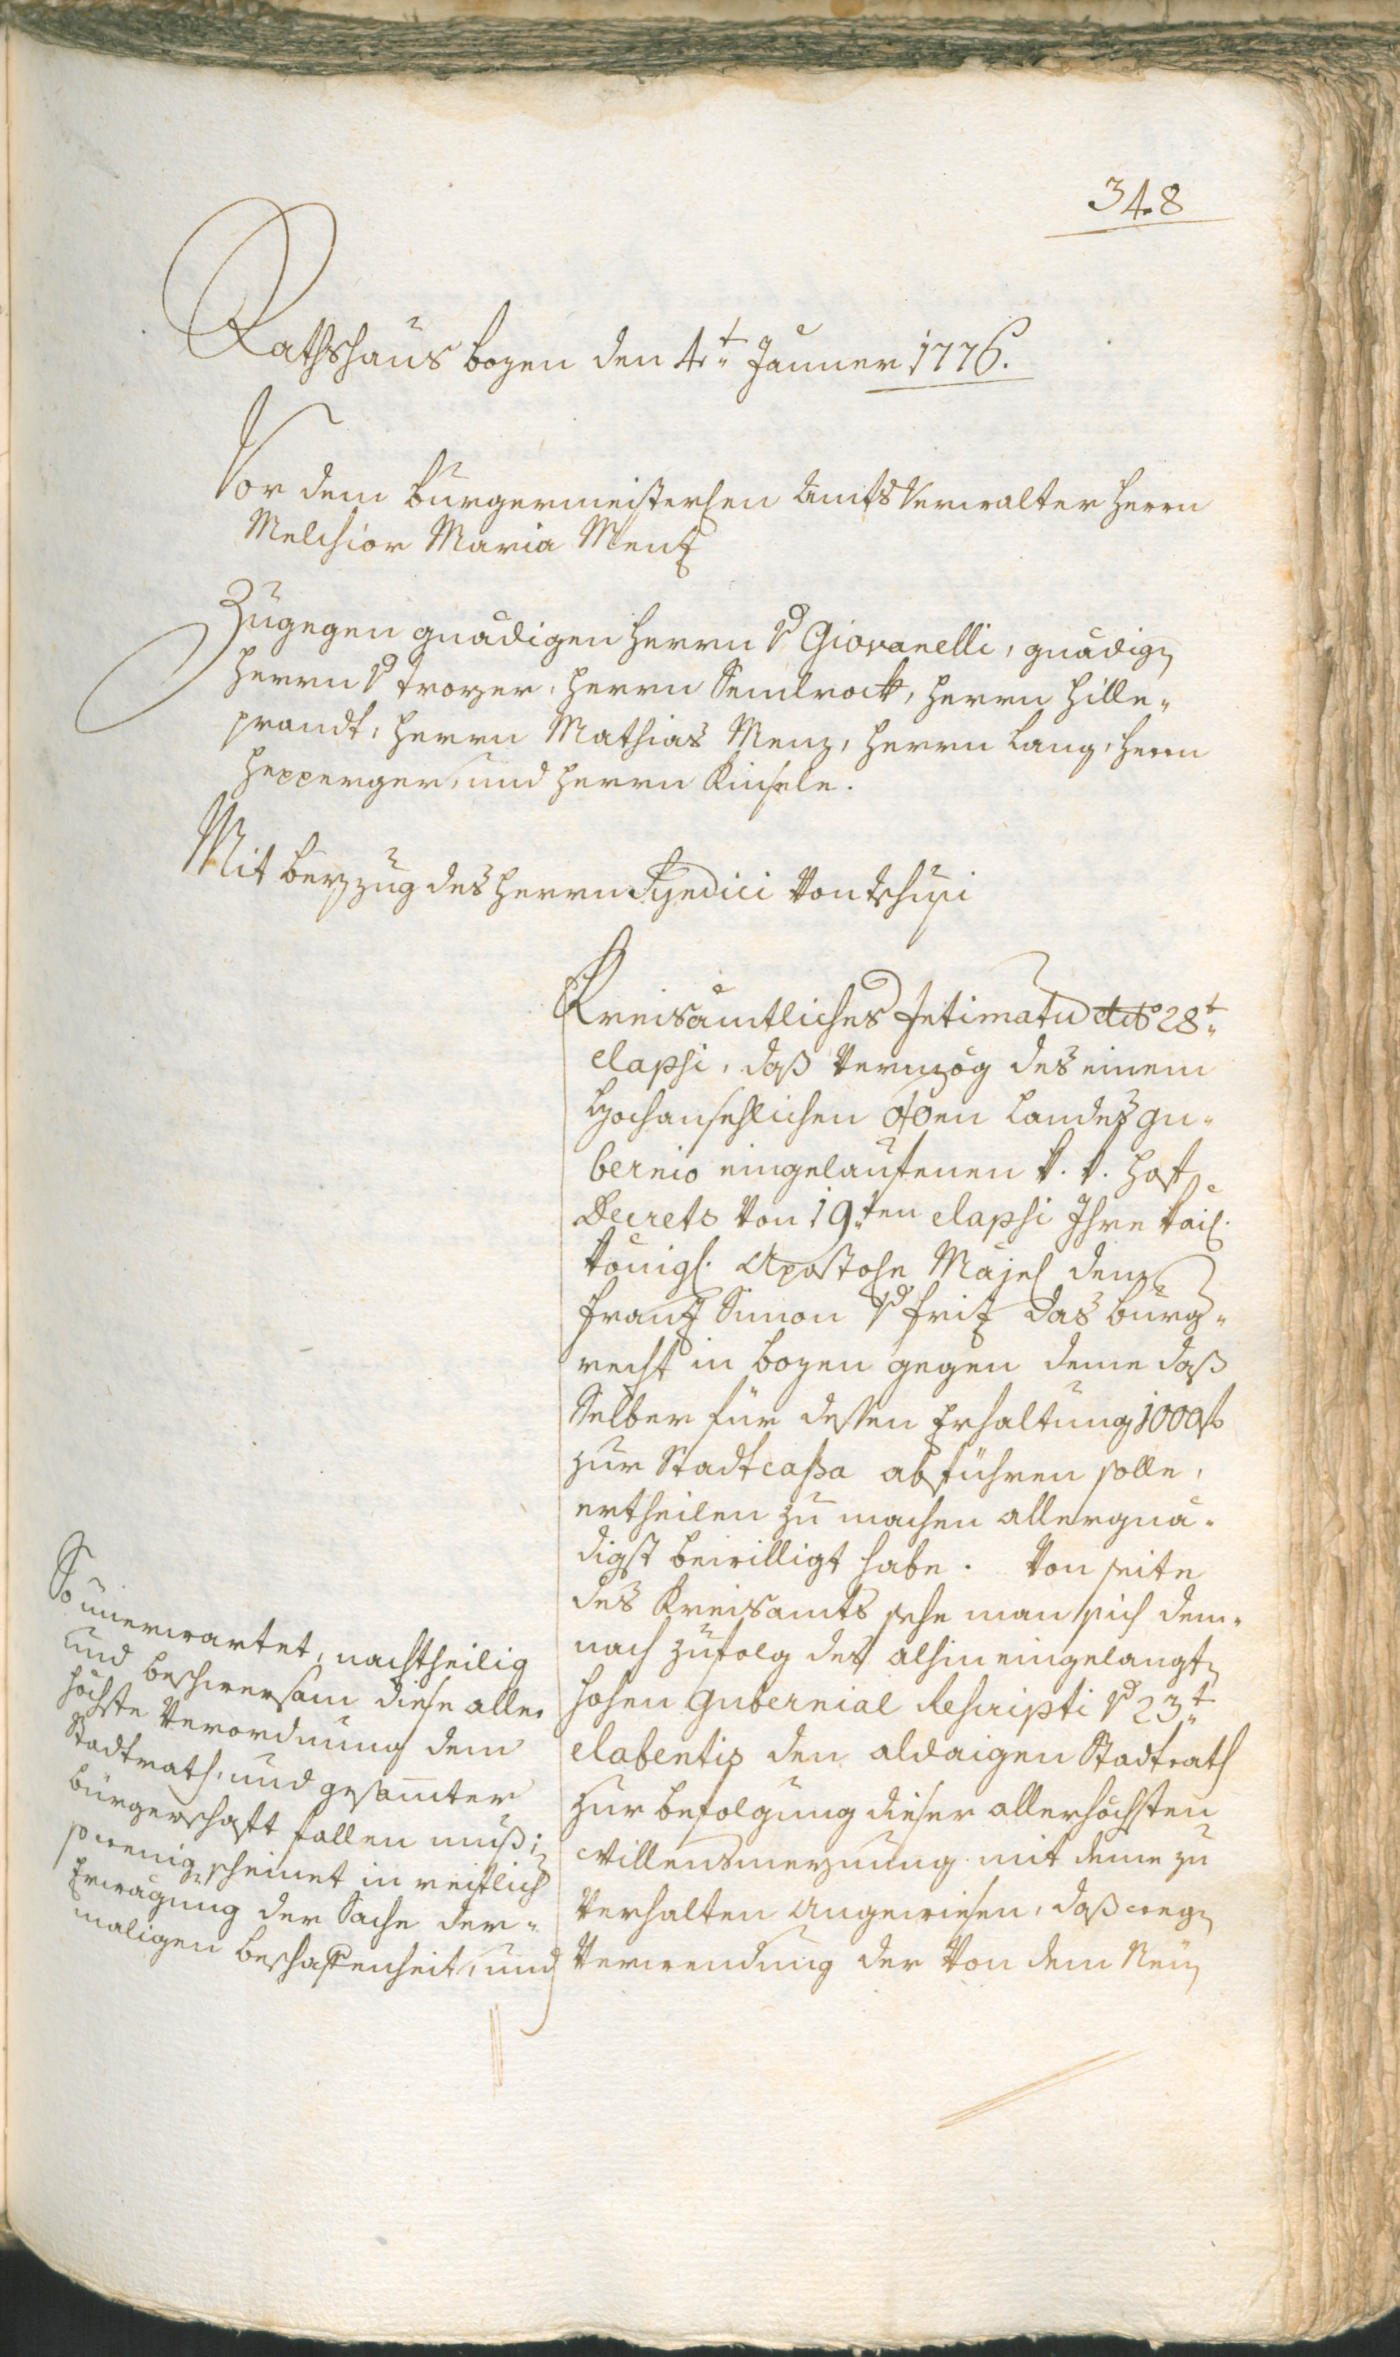 348
Rathshaus bozen den 4.t Jenner 1776.
Vor dem burgermeisterlen Amts Verwalter Herrn
Melchior Maria Menz
Zugegen gnädigen Herrn v Giovanelli, gnädig
Herrn v Troyer, Herrn Sendrock, Herrn Hille,,
prandt, Herrn Mathias Menz, Herrn Lang, Herrn
Hepperger, und Herrn Kinsele.
Mit beyzug des Herrn Syndici von
Kreisämtliches Intimatum dto 28t
elapsi, daß vermög des einem
Hochansehlichen oöen Landesgu,,
bernio eingelaufenen k. k. Hof
Decrets von 19ten elapsi Ihre kais.
königl. Apostohe Majes dem
Franz Simon v Friz das burg,,
recht in bozen gegen deme daß
Selber für dessen Erhaltung 1000 f
zur Stadtcassa abführen solle,
ertheilen zu machen allergnä,,
digst bewilligt habe. Von seite
des Kreisamts sehe man sich dem,,
nach zufolg des alhin eingelangt
hohen Gubernial Rescripti v 23t
elabentis den aldaigen Stadtrath
zur befolgung dieser allerhöchsten
Willensmeynung mit deme zu
verhalten angewiesen, daß weg
verwendung der von dem Neu
So unerwartet, nachtheilig
und beschwersam diese aller
höchste Verordnung dem
Stadtrath, und gesamter
bürgerschaft fallen muß;
so wenig scheinet in reiflich
Erwägung der Sache der,,
maligen beschaffenheit, und